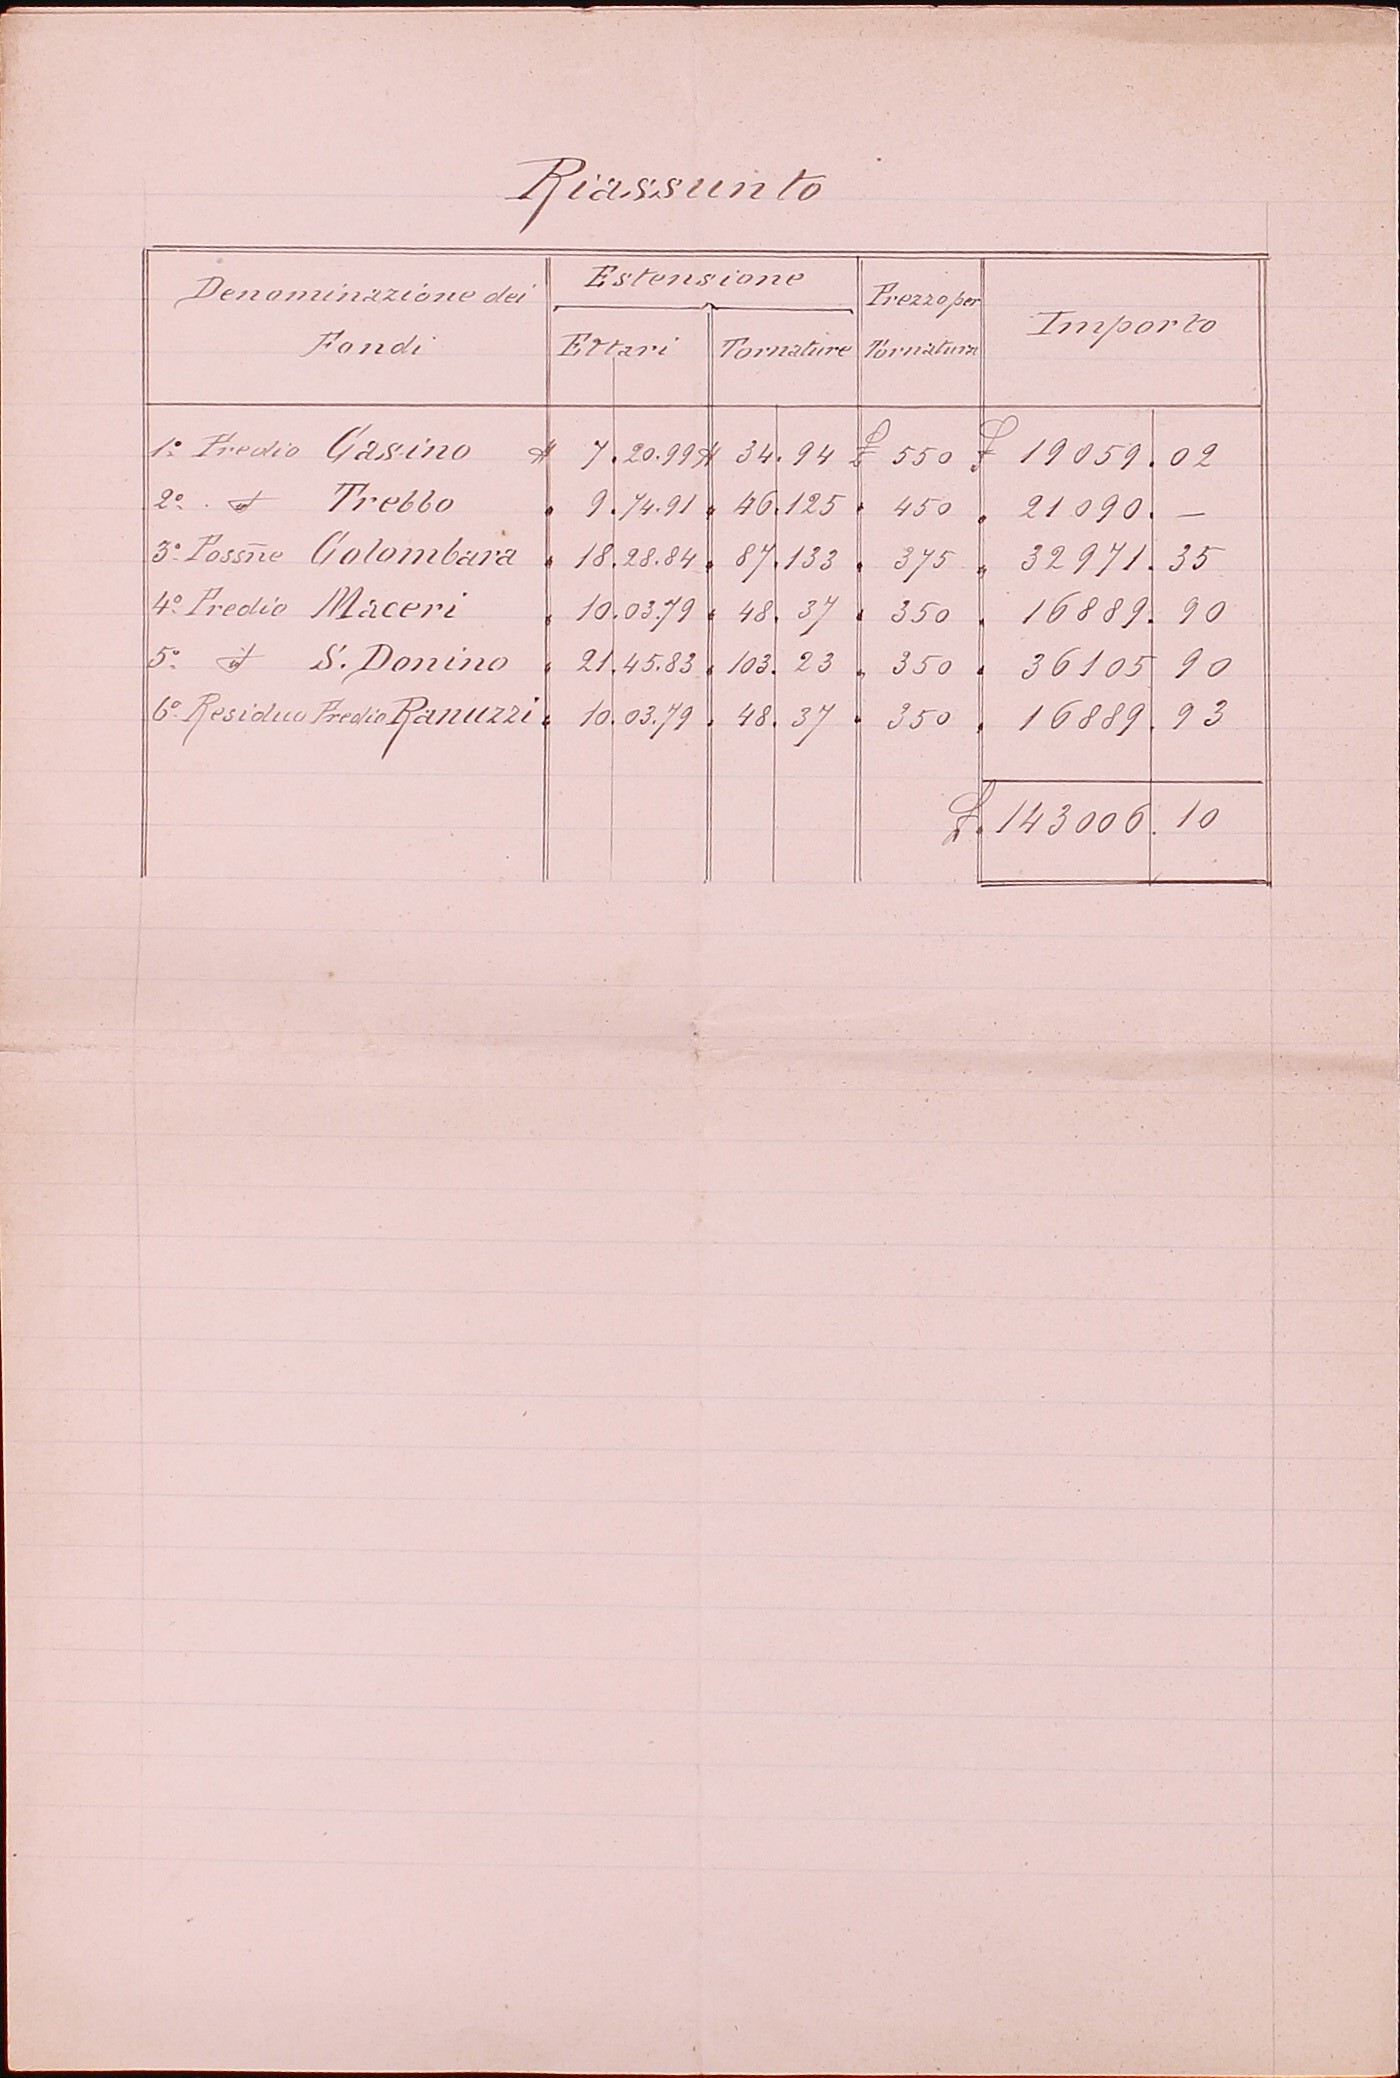 Riassunto
Denominazione dei Fondi | Estensione | Prezzo per Tornatura | Importo
Ettari | Tornature
1º Predio Casino # 7. 20.99 # 34. 94 £ 550 £ 19059. 02
2º . id Trebbo . 9. 74.91 . 46. 125 . 450 . 21090. —
3º Possñe Colombara . 18. 28.84 . 87. 133 . 375 . 32971. 35
4º Predio Maceri . 10. 03.79 . 48. 37 . 350 . 16889. 90
5º id S. Donino . 21. 45.83 . 103. 23 . 350 . 36105 90
6º Residuo Predio Ranuzzi . 10. 03.79 . 48. 37 . 350 . 16889. 93
£. 143006. 10